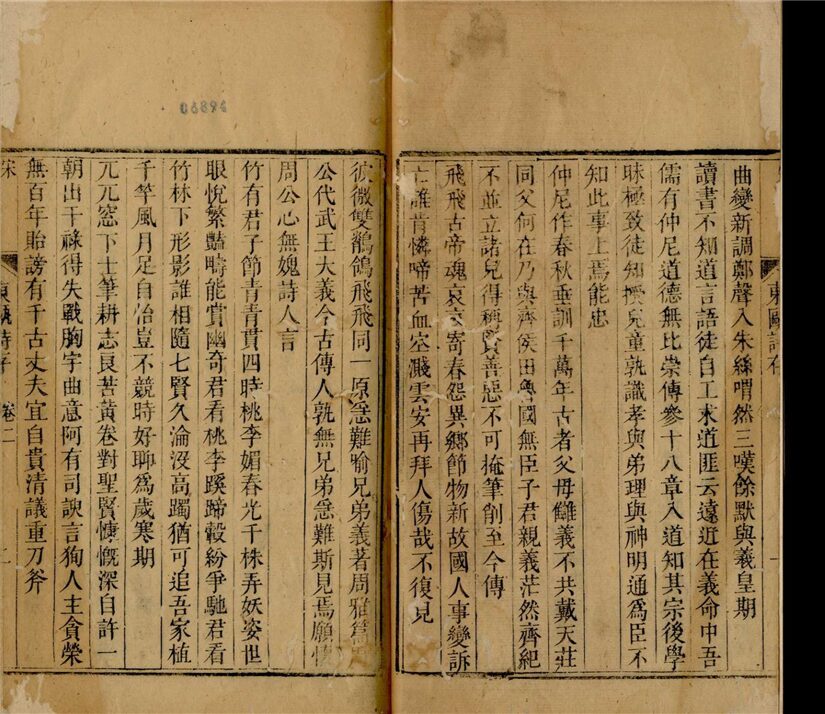 06894
曲變新調鄭聲入朱絲喟然三嘆餘默與羲皇期
讀書不知道言語徒自工求道匪云遠近在義命中吾
儒有仲尼道德無比崇傳參十八章入道知其宗後學
昧極致徒知授兒童孰識孝與弟理與神明通爲臣不
知此事上焉能忠
仲尼作春秋垂訓千萬年古者父母讎義不共戴天莊
同父何在乃與齊侯田魯國無臣子君親義茫然齊紀
不並立諸兒得稱賢善惡不可掩筆削至今傳
飛飛古帝魂哀哀寄春怨異鄉節物新故國人事變訴
亡誰肯憐啼苦血空濺雲安再拜人傷哉不復見
彼微雙鶺鴒飛飛同一原急難喻兄弟義著周雅篇
公代武王大義今古傳人孰無兄弟急難斯見焉願
周公心無媿詩人言
竹有君子節青青貫四時桃李媚春光千株弄妖姿世
眼悅繁豔疇能賞幽奇君看桃李蹊蹄轂紛爭馳君看
竹林下形影誰相隨七賢久淪沒高躅猶可追吾家植
千竿風月足自怡豈不競時好聊爲歲寒期
兀兀窓下士筆耕志良苦黃卷對聖賢慷慨深自許一
朝出干祿得失戰胸宇曲意阿有司諛言狥人主貪榮
無百年貽謗有千古丈夫宜自貴清議重刀斧
卷二
二